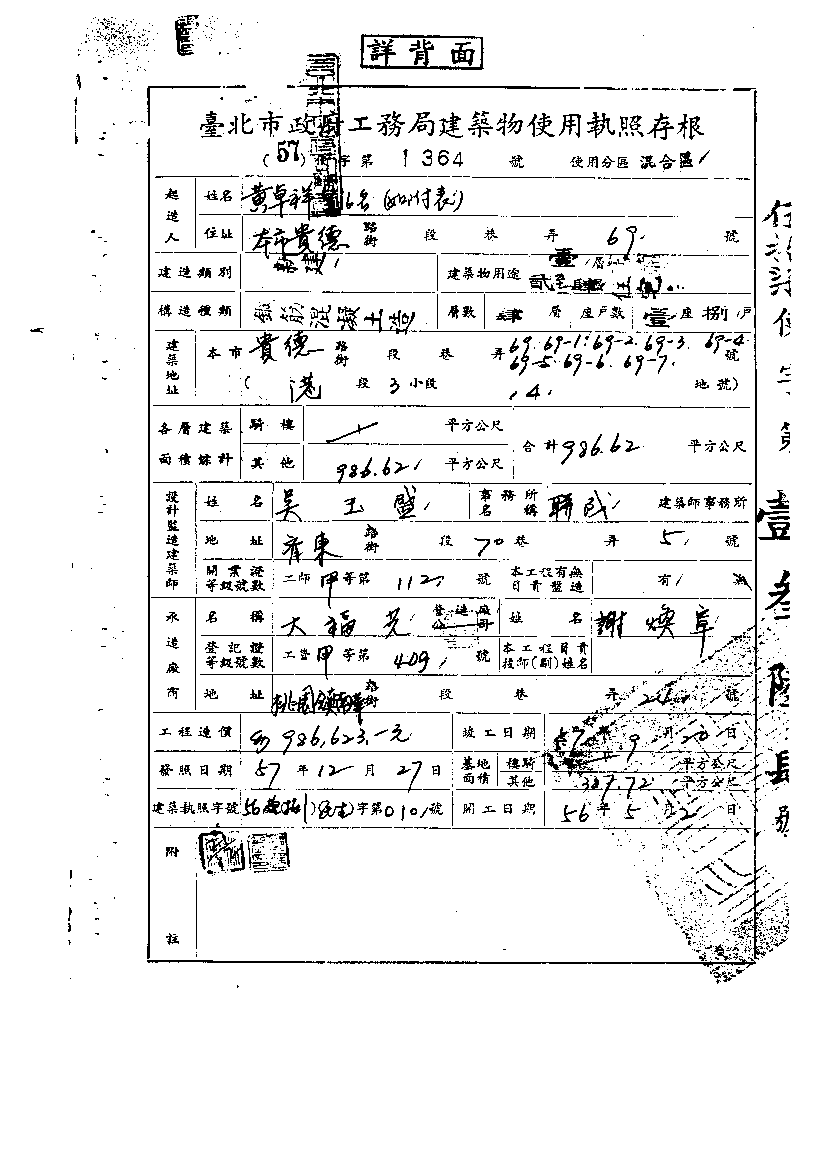 詳背面
臺北市政府工務局建築物使用執照存根
(57) 字第 1364 號 使用分區 混合區
起造人 姓名 黃卓祥 16名(如附表)
住址 本市貴德 路街 段 巷 弄 69 號
建造類別 建築物用途 壹層
貳至肆 住
構造種類 鋼筋混凝土造 層數 肆 層 座戶數 壹座捌戶
建築地址 本市 貴德 路街 段 巷 弄 69.69-1.69-2.69-3.69-4
69-5.69-6.69-7. 號
( 港 段 3 小段 4 地號)
各層建築面積錄計 騎樓 平方公尺 合計 986.62 平方公尺
其他 986.62 平方公尺
設計監造建築師 姓名 吳玉盛 事務所名稱 聯成 建築師事務所
地址 齊東 路街 段 70 巷 弄 5 號
開業證等級號數 工師 甲 等第 112 號 本工程有無自責監造 有 無
承造廠商 名稱 大福 營造廠公司 姓名 謝煥章
登記證等級號數 工營 甲 等第 409 號 本工程負責技師(副)姓名
地址 桃園鎮 路街 段 巷 弄 號
工程造價 986,623.-元 竣工日期 57年9月20日
發照日期 57年12月27日 基地面積 騎樓 平方公尺
其他 387.72 平方公尺
建築執照字號 56 字第0101號 開工日期 56年5月2日
附註
使字第壹叁陸肆號